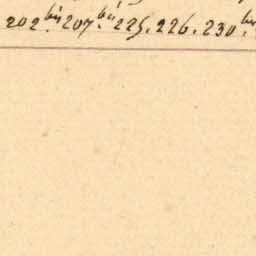 202 bis 207. bis 225. 226. 230. bis